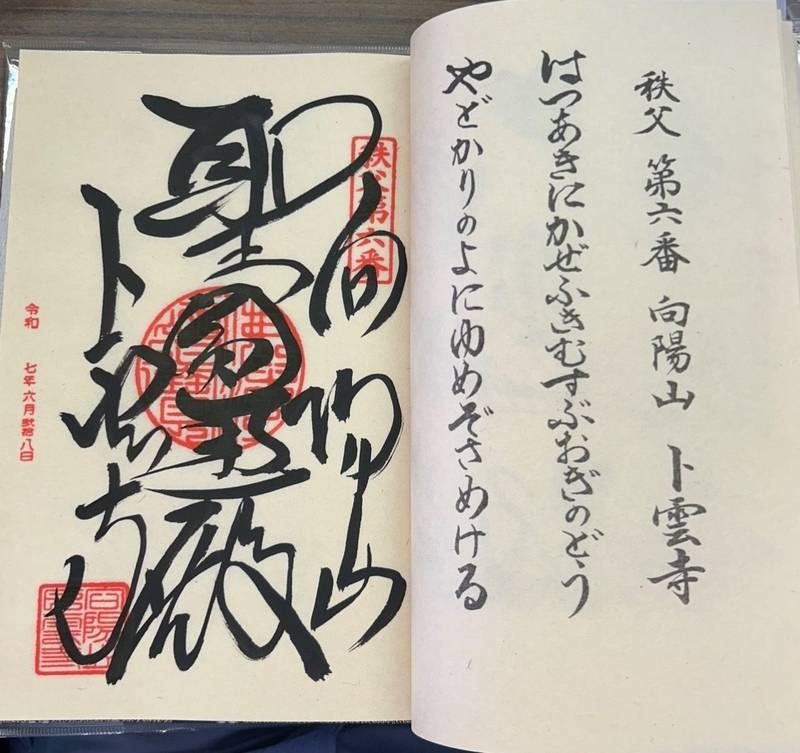 秩父 第六番 向陽山 卜雲寺
はつあきにかぜふきむすぶおぎのどう
やどかりのよにゆめぞさめける
秩父第六番
向陽山
聖観殿
卜雲寺
令和 七年六月弐拾八日